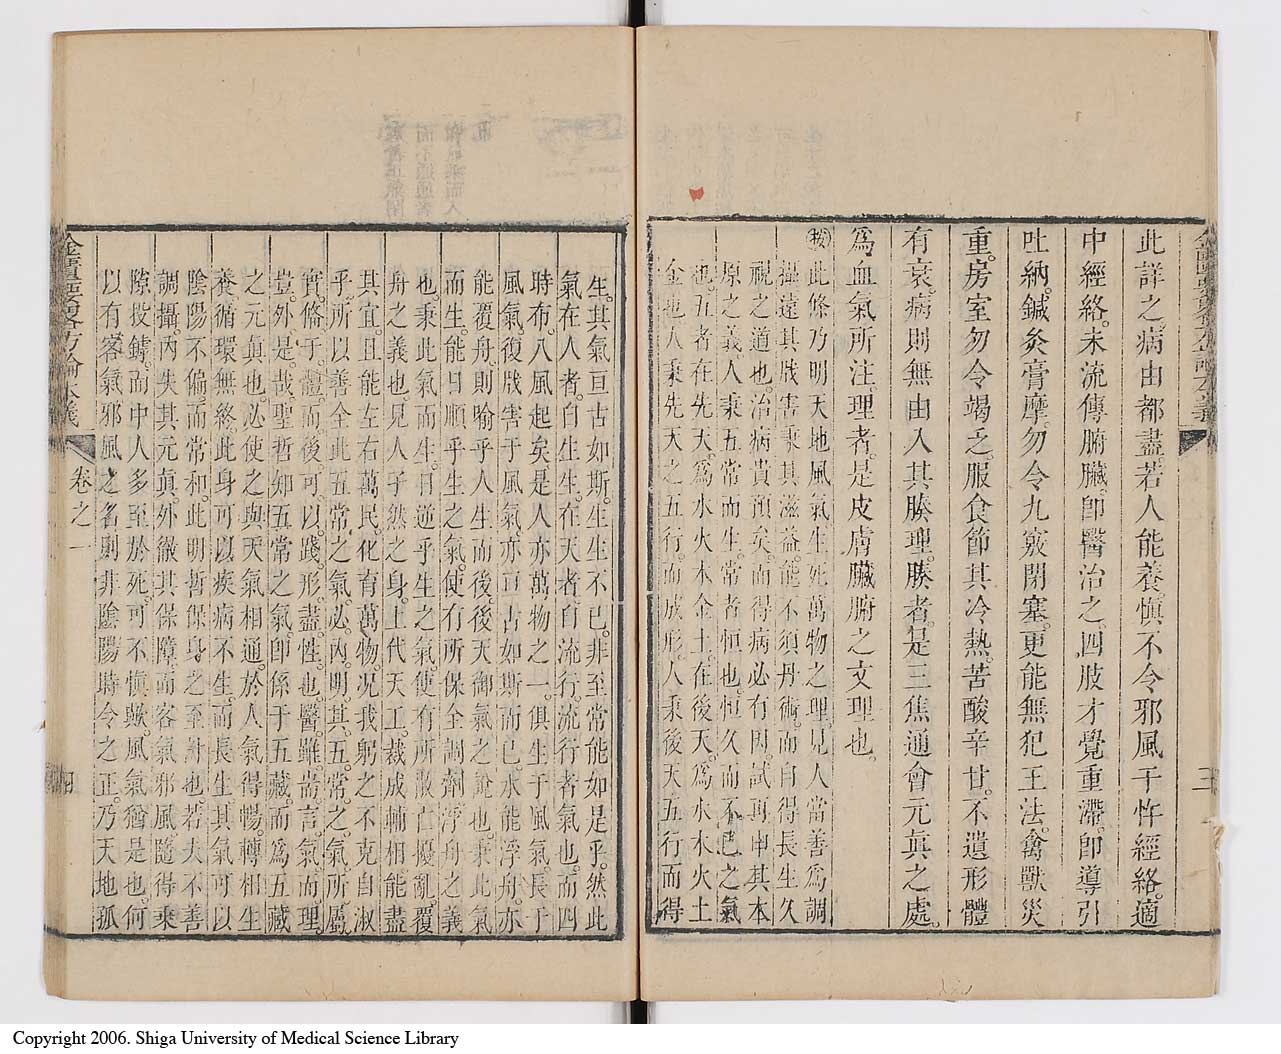 此詳之病由都盡若人能養慎不令邪風干忤經絡適
中經絡未流傳腑臟卽醫治之四肢才覺重滯卽導引
吐納鍼灸膏摩勿令九竅閉塞更能無犯王法禽獸災
重房室勿令竭乏服食節其冷熱苦酸辛甘不遺形體
有衰病則無由入其腠理腠者是三焦通會元眞之處
爲血氣所注理者是皮膚臟腑之文理也
按此條乃明天地風氣生死萬物之理見人當善爲調
攝遠其戕害乘其滋益能不須丹術而自得長生久
視之道也治病貴預矣而得病必有因試再申其本
原之義人秉五常而生常者恒也恒久而不已之氣
也五者在先天爲水火木金土在後天爲水木火土
金也人秉先天之五行而成形人秉後天五行而得
生其氣亘古如斯生生不已非至常能如是乎然此
氣在人者自生生在天者自流行流行者氣也而四
時布八風起矣是人亦萬物之一俱生于風氣長于
風氣復戕害于風氣亦亘古如斯而已水能浮舟亦
能覆舟則喻乎人生而後後天御氣之說也秉此氣
而生能日順乎生之氣使有所保全調劑浮舟之義
也秉此氣而生日逆乎生之氣使有所散亡擾亂覆
舟之義也見人子然之身上代天工裁成輔相能盡
其宜且能左右萬民化育萬物况我躬之不克自淑
乎所以善全此五常之氣必內明其五常之氣所屬
實備于體而後可以踐形盡性也醫雖耑言氣而理
豈外是哉聖哲知五常之氣卽係于五藏而爲五藏
之元眞也必使之與天氣相通於人氣得暢轉相生
養循環無終此身可以疾病不生而長生其氣可以
陰陽不偏而常和此明哲保身之至計也若夫不善
調攝內失其元眞外徹其保障而客氣邪風隨得乘
隙投罅而中人多至於死可不慎歟風氣猶是也何
以有客氣邪風之名則非陰陽時令之正乃天地孤
金匱要略方論本義
卷之一
三
Copyright 2006. Shiga University of Medical Science Library